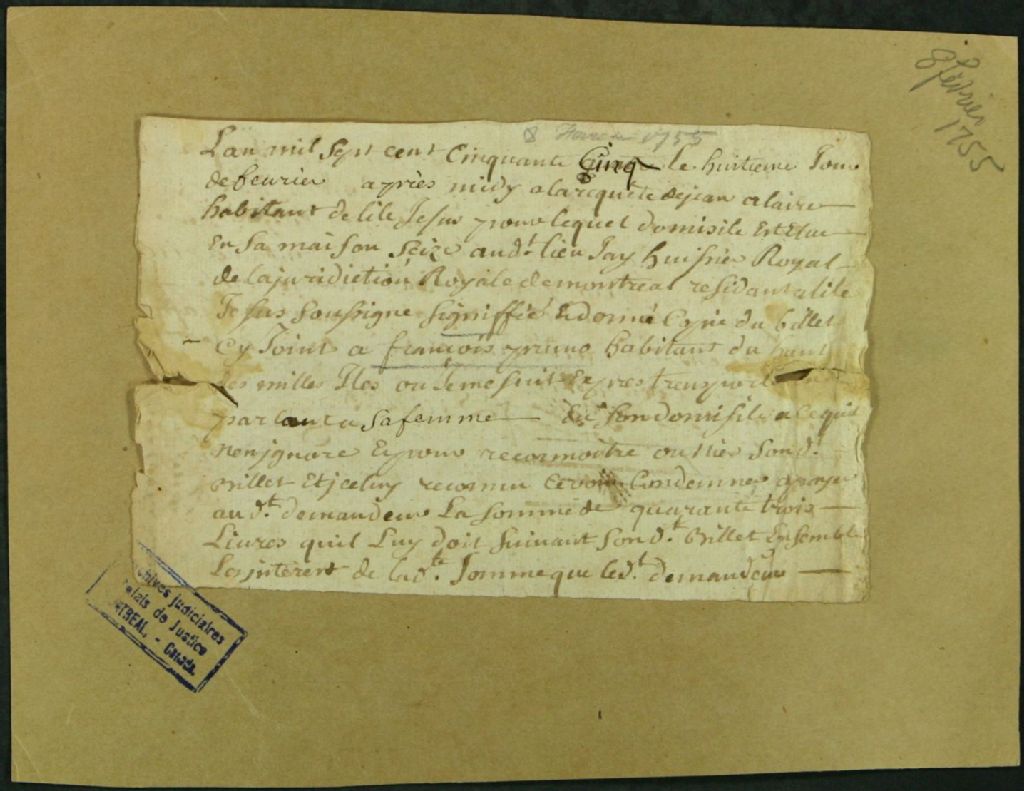 8 février
1755
8 Fevrier 1755
Lan mil Sept cent Cinquante Cinq le huitieme Jour
defeurier apres midy alarequete dejean alaire
habitant delile Jesus pour lequel domisile Est Elue
En Sa maison Seize audt lieu Jay huissier Royal
de lajuridiction Royale demontreal residant a lile
Jesus Soussigne Signiffié Edonné Copie du billet
Cy Joint a francois habitant du
des milles Iles ou Jeme suit Expres
parlant a Safemme de Son domisile a ce quil
nenignore Et pour reconnoitre ou nier Sond.
billet Et iceluy reconnu Condemner a payer
audt demandeur La Somme de quarante trois
Livres quil Luy doit Suivant Sondt billet Ensemble
Lesinterest de ladte Somme que ledt demandeur
Archives judiciaires
Palais de Justice
MONTREAL, - Canada.